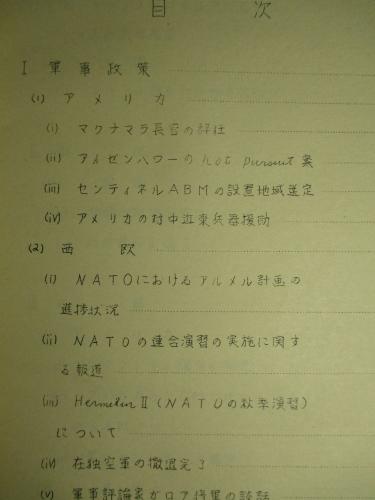 目 次
I 軍事政策
(1) アメリカ
(i) マクナマラ長官の辞任
(ii) アイゼンハワーの hot pursuit 案
(iii) センティネルABMの設置地域選定
(iv) アメリカの対中近東兵器援助
(2) 西 欧
(i) NATOにおけるアルメル計画の
進捗状況
(ii) NATOの連合演習の実施に関す
る報道
(iii) Hermelin II (NATOの秋季演習)
について
(iv) 在独空軍の撤退完了
(v) 軍事評論家ガロア将軍の談話